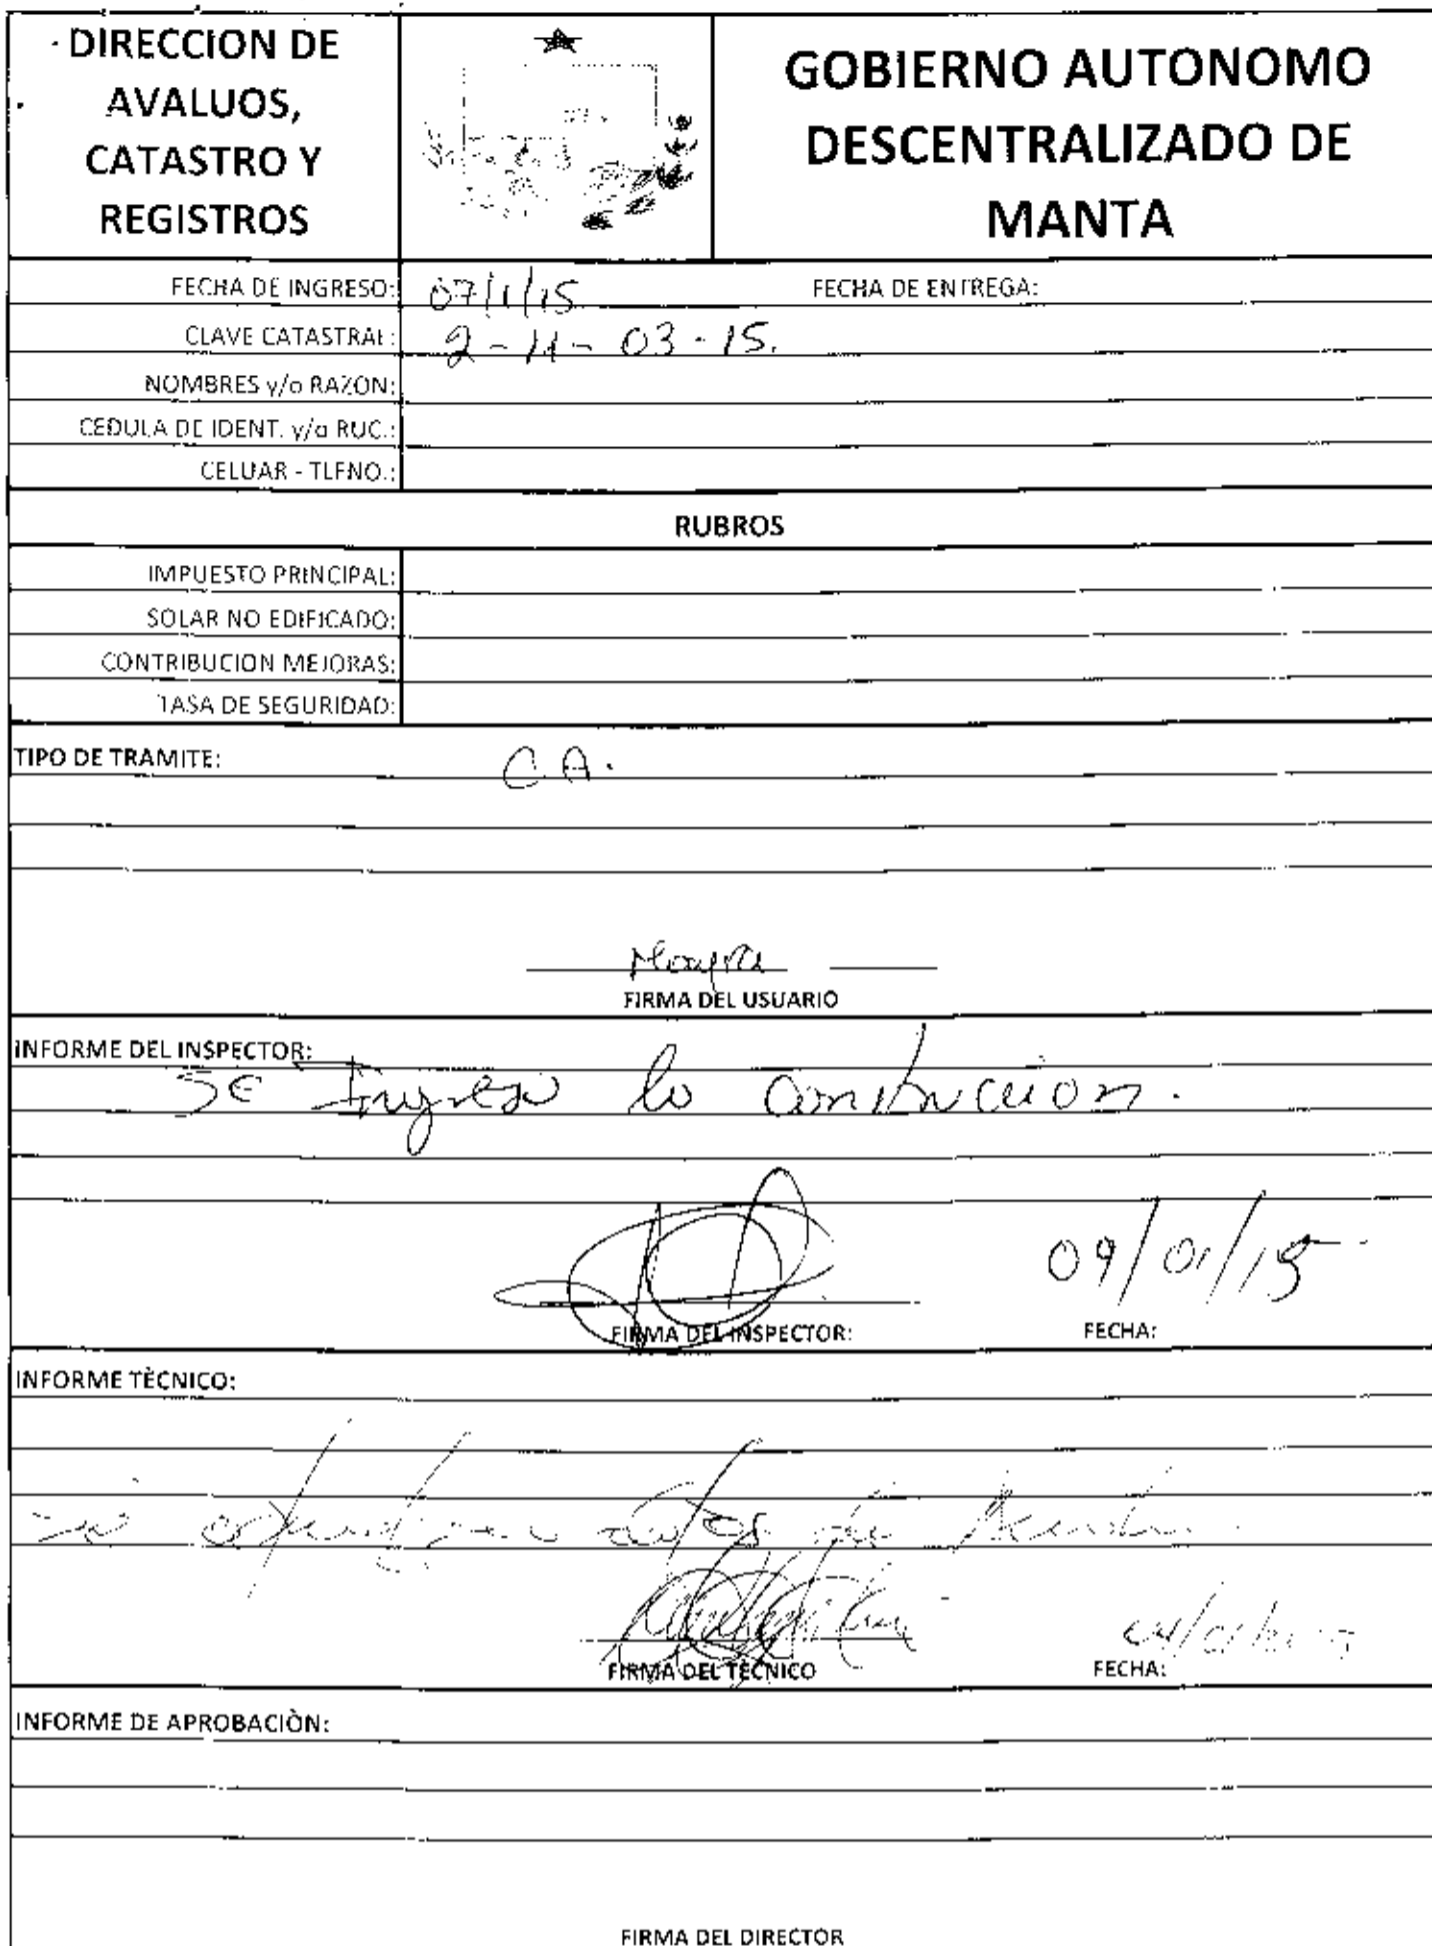 DIRECCION DE
AVALUOS,
CATASTRO Y
REGISTROS
GOBIERNO AUTONOMO
DESCENTRALIZADO DE
MANTA
FECHA DE INGRESO: 07/1/15 FECHA DE ENTREGA:
CLAVE CATASTRAL: 2-11-03-15.
NOMBRES y/o RAZON:
CEDULA DE IDENT. y/o RUC.:
CELUAR - TLFNO.:
RUBROS
IMPUESTO PRINCIPAL:
SOLAR NO EDIFICADO:
CONTRIBUCION MEJORAS:
TASA DE SEGURIDAD:
TIPO DE TRAMITE: C.A.
FIRMA DEL USUARIO
INFORME DEL INSPECTOR:
Se Ingreso la Construccion.
09/01/15
FIRMA DEL INSPECTOR: FECHA:
INFORME TÈCNICO:
FIRMA DEL TÈCNICO FECHA:
INFORME DE APROBACIÒN:
FIRMA DEL DIRECTOR